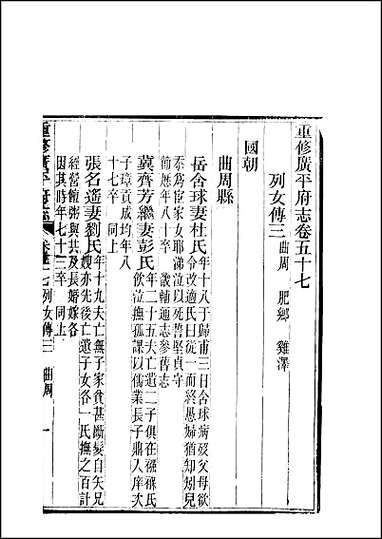 重修廣平府志卷五十七
列女傳三 曲周 肥鄉 雞澤
國朝
曲周縣
岳含球妻杜氏 年十八于歸甫三日含球病歿父母欲
令改適氏曰從一而終愚婦猶知矧兒
忝爲宦家女耶涕泣以死誓堅貞守
節歷年八十卒 畿輔通志參舊志
冀齊芳繼妻彭氏 年二十五夫亡遺二子俱在襁褓氏
飲泣撫孤課以儒業長子鼎入庠次
子璋貢成均年八
十七卒 同上
張名遙妻劉氏 年十九夫亡撫子家貧甚斷髮自矢兄
嫂亦先後亡遺子女各一氏撫之百計
經營饘粥與共及長婚嫁各
因其時年七十三卒 同上
重修廣平府志 卷五十七 列女傳三 曲周 一